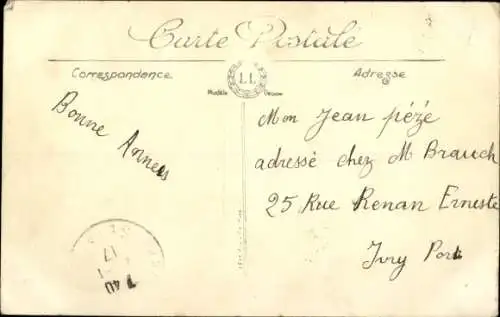 Carte Postale
Correspondance
LL
Adresse
Modèle
Bonne Annees
Mon Jean pézé
adressé chez M Brauch
25 Rue Renan Erneste
Ivry Port
17
40